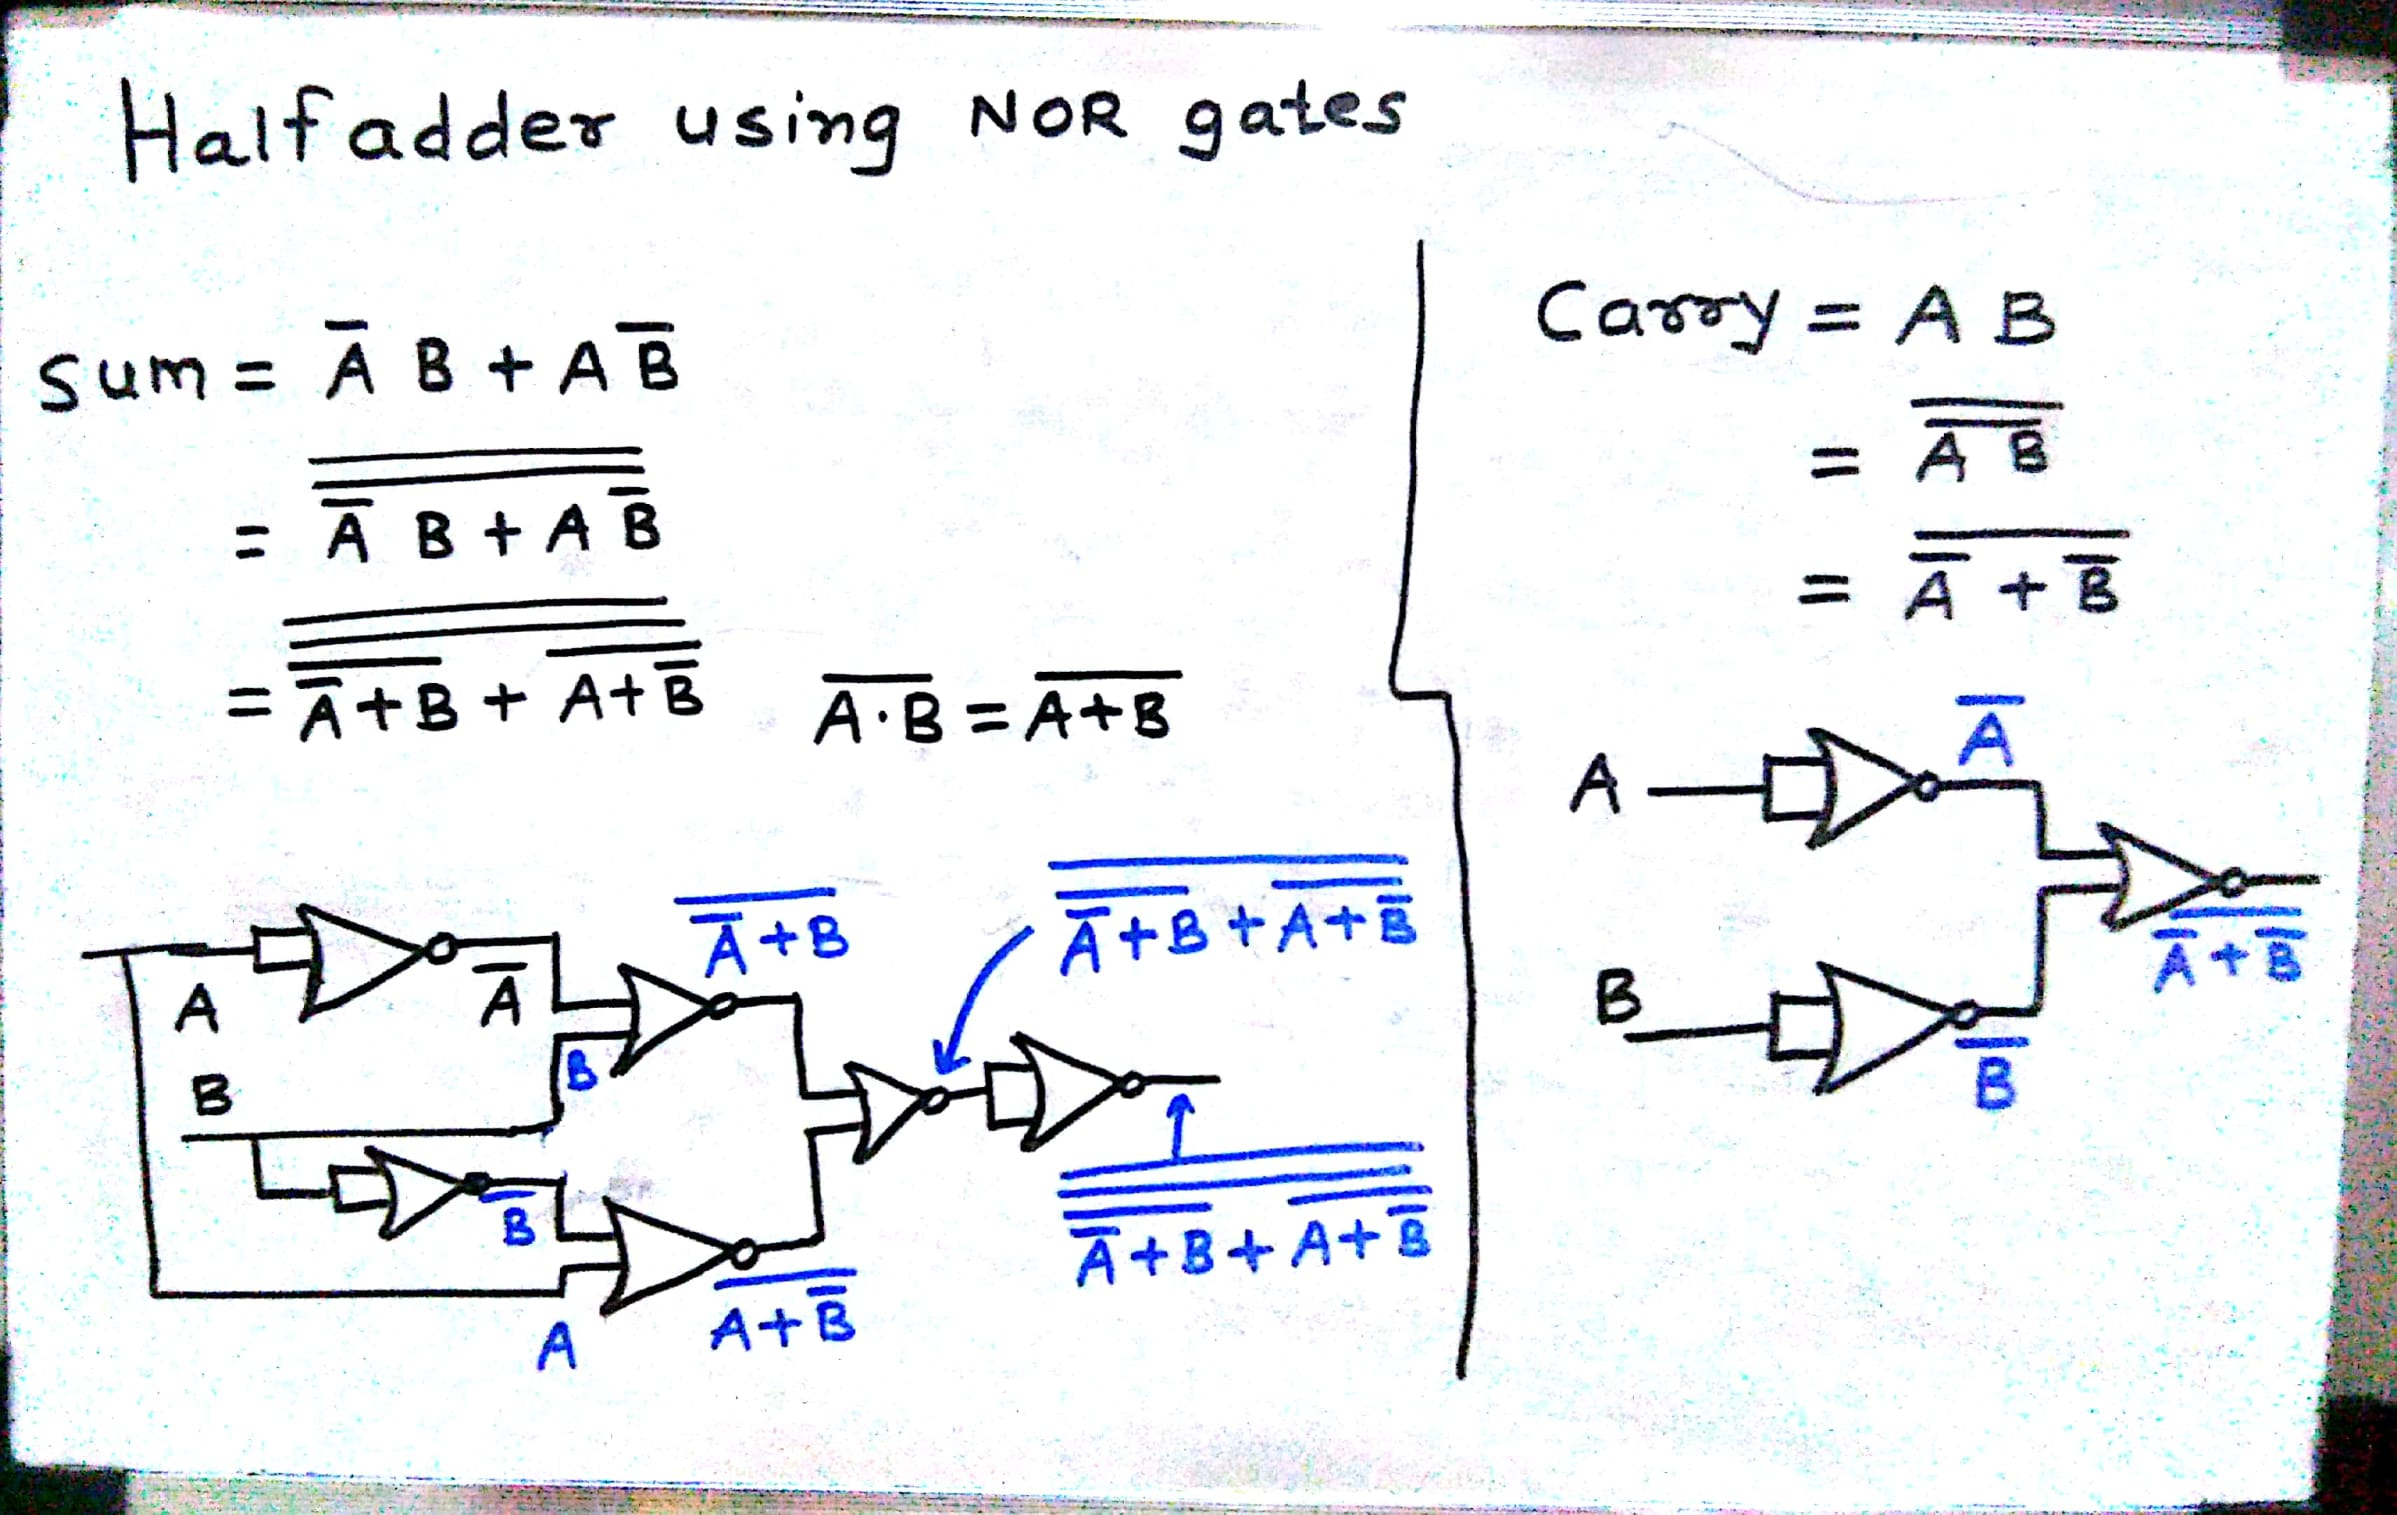 Half adder using NOR gates
Sum = A̅ B + A B̅
= \overline{\overline{A̅ B + A B̅}}
= \overline{\overline{\overline{A̅ + B} + \overline{A + B̅}}}
\overline{A·B} = \overline{A+B}
A
B
A̅
B
B̅
A
\overline{A̅ + B}
\overline{A + B̅}
\overline{\overline{A̅ + B} + \overline{A + B̅}}
\overline{\overline{\overline{A̅ + B} + \overline{A + B̅}}}
Carry = A B
= \overline{\overline{A B}}
= \overline{A̅ + B̅}
A
A̅
B
B̅
\overline{A̅ + B̅}